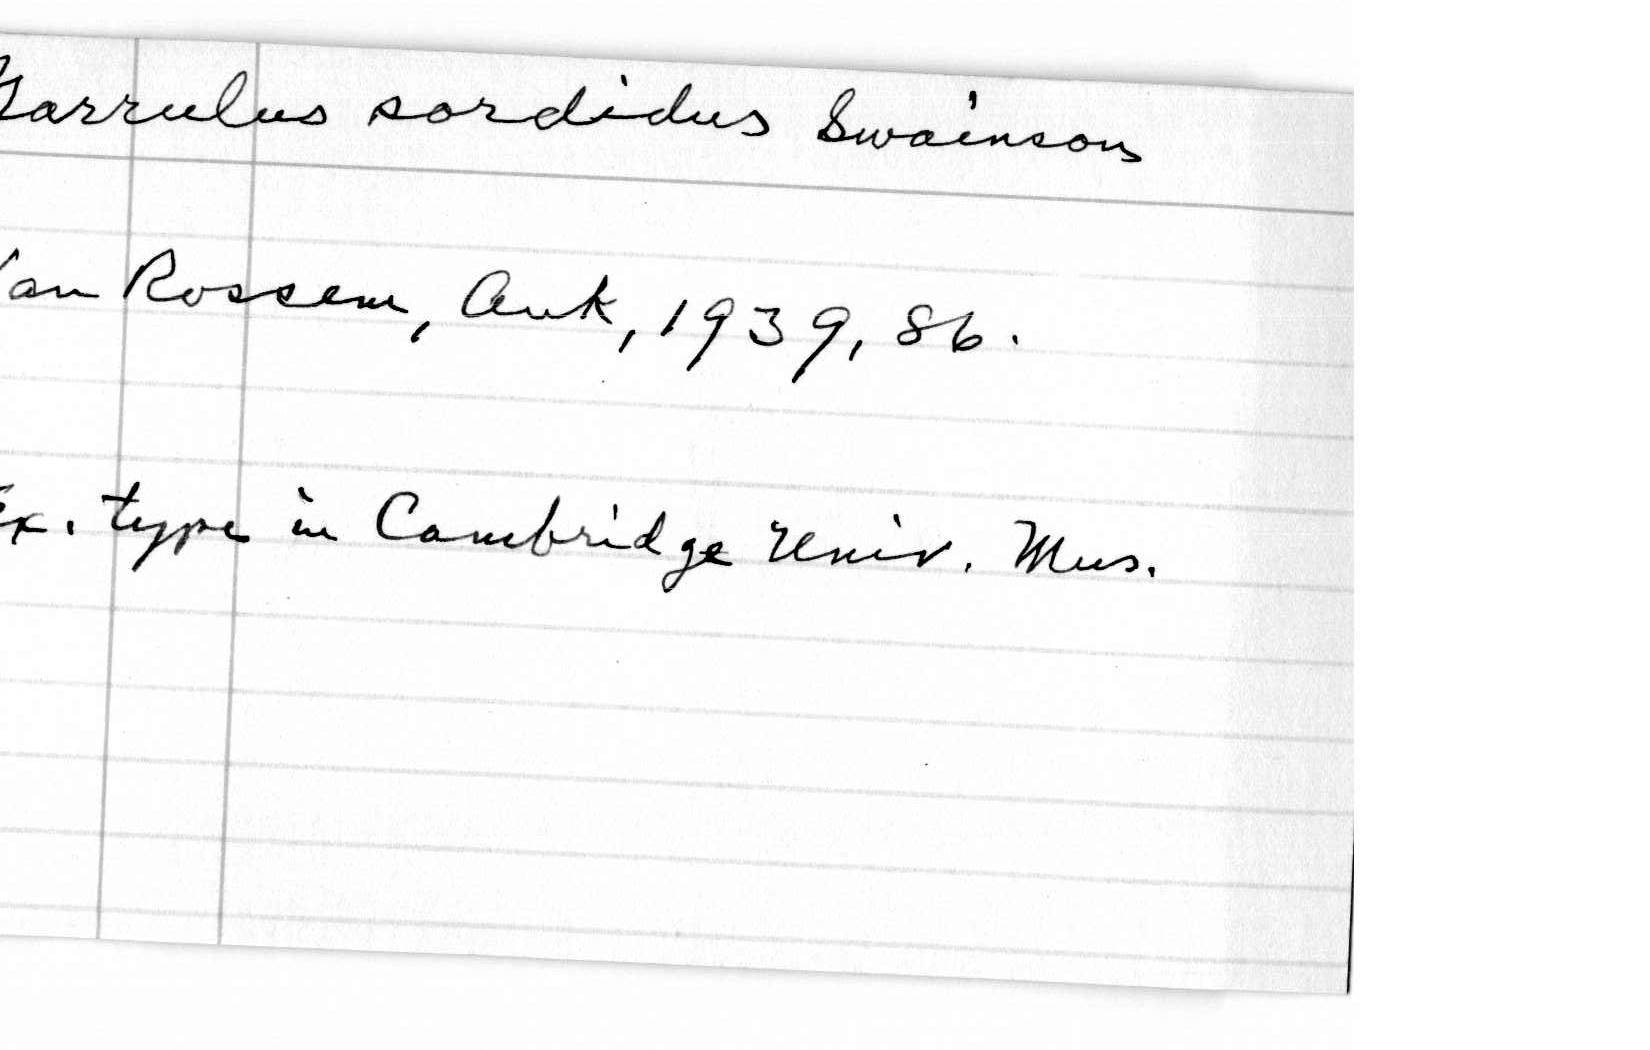 Garrulus sordidus Swainson
Van Rossem, Auk, 1939, 86.
Ex. type in Cambridge Univ. Mus.